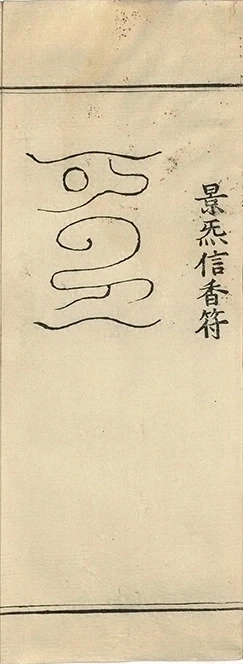 景炁信香符